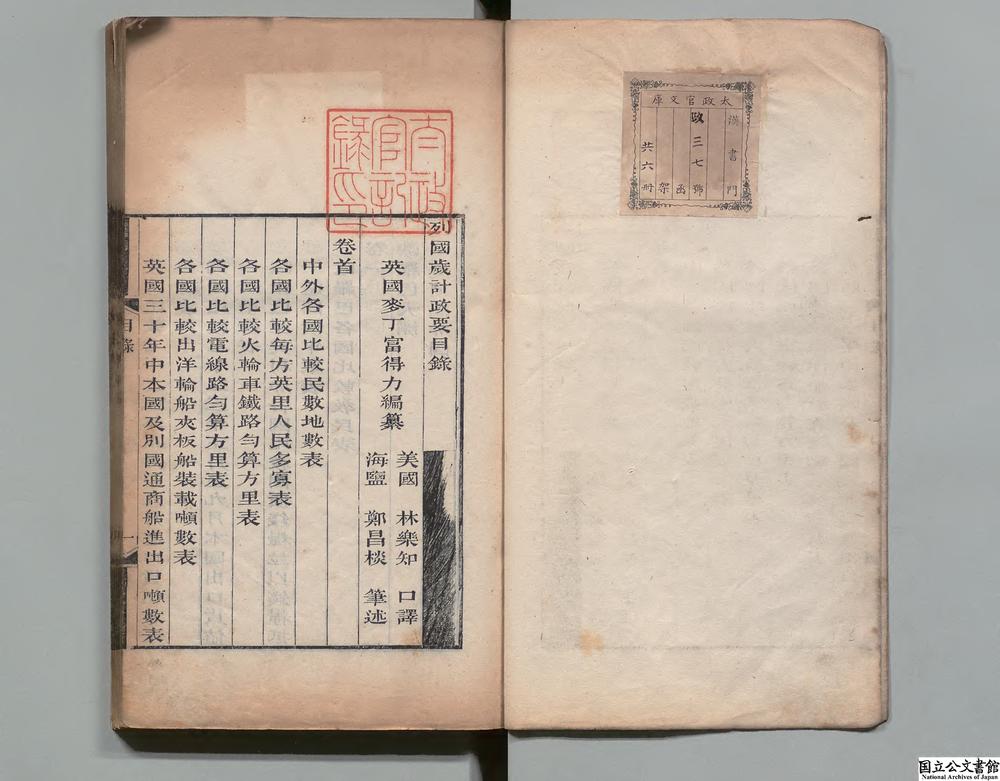 太政官文庫
漢書門
政三七號
函
架
共六冊
太政
官記
錄印
列國歲計政要目錄
英國麥丁富得力編纂
美國 林樂知 口譯
海鹽 鄭昌棪 筆述
卷首
中外各國比較民數地數表
各國比較每方英里人民多寡表
各國比較火輪車鐵路勻算方里表
各國比較電線路勻算方里表
各國比較出洋輪船夾板船裝載噸數表
英國三十年中本國及別國通商船進出口噸數表
目錄
一
国立公文書館
National Archives of Japan